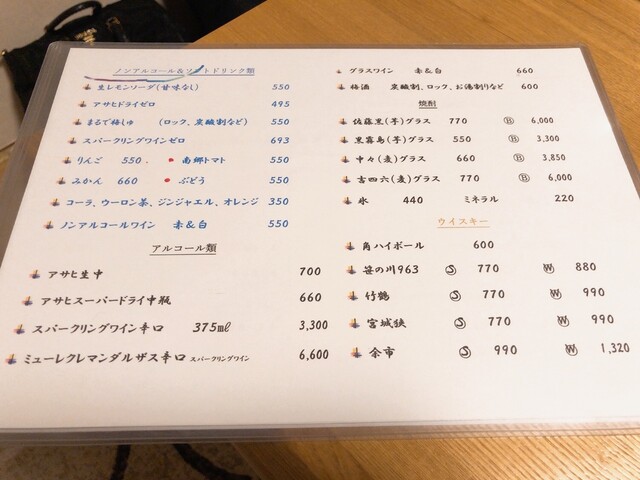 ノンアルコール&ソフトドリンク類
生レモンソーダ(甘味なし) 550
アサヒドライゼロ 495
まるで梅しゅ (ロック、炭酸割など) 550
スパークリングワインゼロ 693
りんご 550. 南郷トマト 550
みかん 660 ぶどう 550
コーラ、ウーロン茶、ジンジャエル、オレンジ 350
ノンアルコールワイン 赤&白 550
アルコール類
アサヒ生中 700
アサヒスーパードライ中瓶 660
スパークリングワイン辛口 375㎖ 3,300
ミューレクレマンダルザス辛口 スパークリングワイン 6,600
グラスワイン 赤&白 660
梅酒 炭酸割、ロック、お湯割りなど 600
焼酎
佐藤黒(芋)グラス 770 Ⓑ 6,000
黒霧島(芋)グラス 550 Ⓑ 3,300
中々(麦)グラス 660 Ⓑ 3,850
吉四六(麦)グラス 770 Ⓑ 6,000
氷 440 ミネラル 220
ウイスキー
角ハイボール 600
笹の川963 Ⓢ 770 Ⓦ 880
竹鶴 Ⓢ 770 Ⓦ 990
宮城狭 Ⓢ 770 Ⓦ 990
余市 Ⓢ 990 Ⓦ 1,320